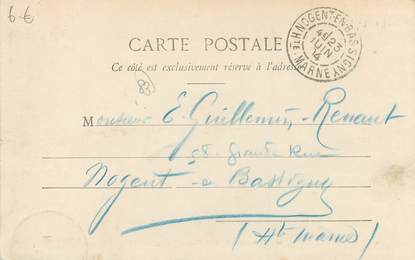 6 €
CARTE POSTALE
Ce côté est exclusivement réservé à l'adresse
NOGENT-EN-BASSIGNY
23
JUIN
14
HTE MARNE
83
Monsieur E. Guillemin-Renaut
58 Grande Rue
Nogent-en-Bassigny
(Hte Marne)